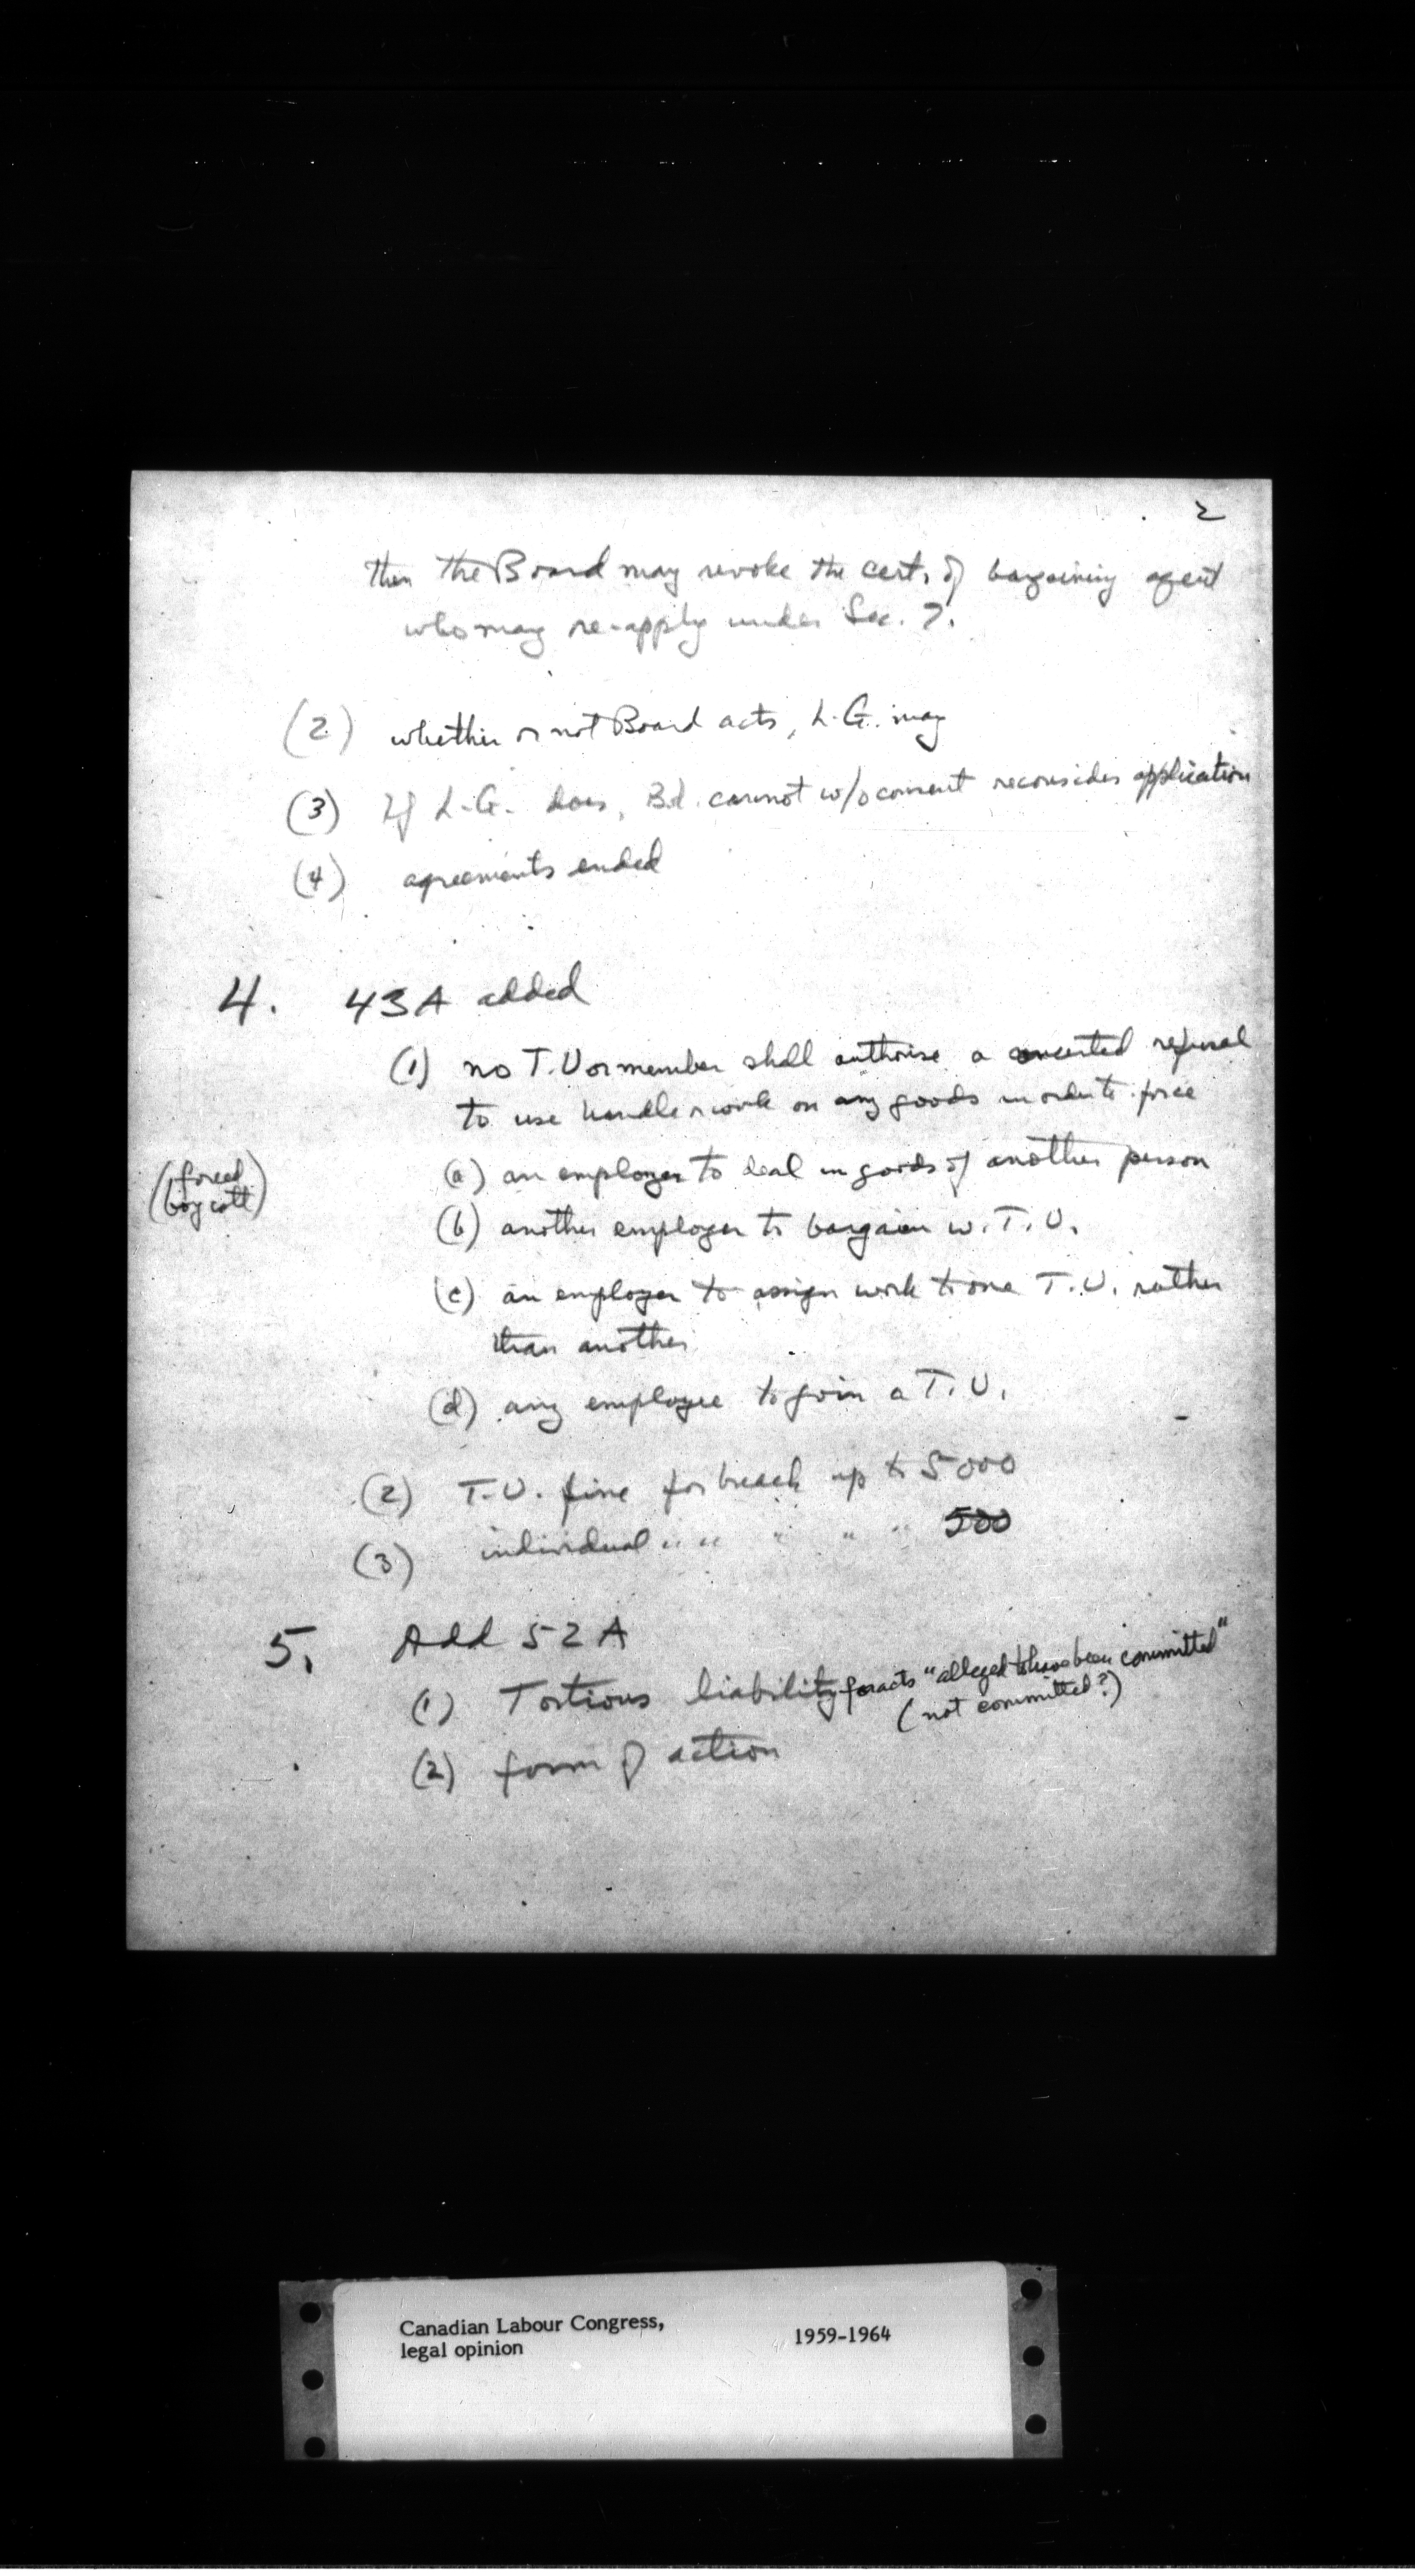 2
then the Board may revoke the cert. of bargaining agent
who may re-apply under Sec. 7.
(2) whether or not Board acts, L.G. may
(3) If L.G. does, Bd. cannot w/o consent reconsider application
(4) agreements ended
4. 43A added
(1) no T.U or member shall authorise a concerted refusal
to use handle or work on any goods in order to force
(forced
boycott)
(a) an employer to deal in goods of another person
(b) another employer to bargain w. T.U.
(c) an employer to assign work to one T.U. rather
than another
(d) any employee to join a T.U.
(2) T.U. fine for breach up to 5000
(3) individual " " " " " 500
5. Add 52A
(1) Tortious liability for acts "alleged to have been committed"
(not committed?)
(2) form of action
Canadian Labour Congress, 1959-1964
legal opinion